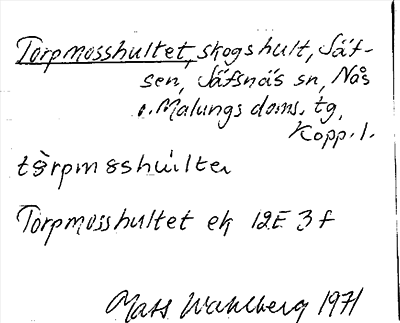 Torpmosshultet, skogshult, Säf-
sen, Säfsnäs sn, Nås
o. Malungs doms. tg,
Kopp. l.
tɜ̀rpmɜshúlte
Torpmosshultet ek 12E 3f
Mats Wahlberg 1971